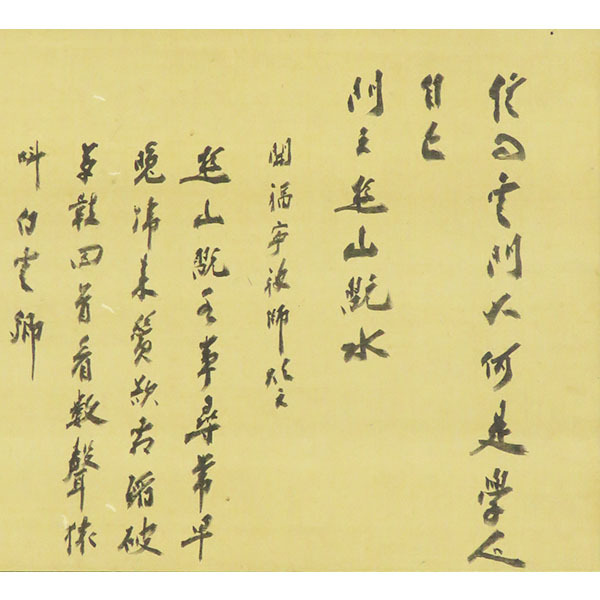 僧問雲門如何是學人
自己
門云遊山翫水
開福寧禅師頌云
遊山翫水事尋常早
晩歸来鬢欲霜踏破
草鞋回首看數聲猿
叫白雲郷